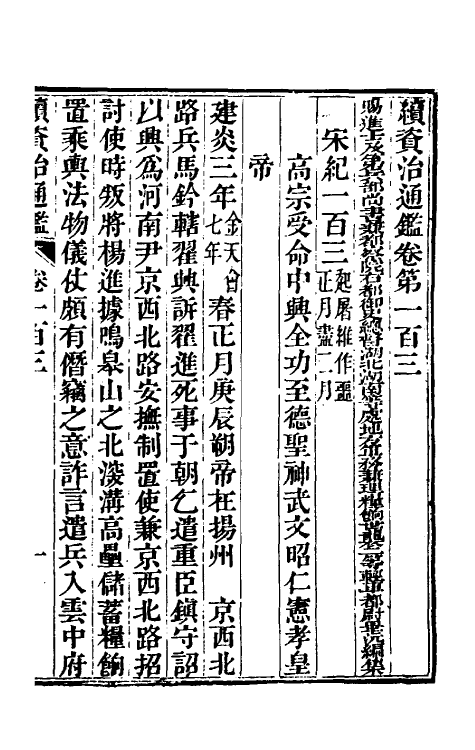 續資治通鑑卷第一百三
賜進士及第兵部尚書兼都察院右都御史總督湖北湖南等處地方軍務兼理糧餉世襲二等輕車都尉畢沅編集
宋紀一百三起屠維作噩正月盡二月
高宗受命中興全功至德聖神武文昭仁憲孝皇
帝
建炎三年金天會七年春正月庚辰朔帝在揚州 京西北
路兵馬鈐轄翟興訴翟進死事于朝乞遣重臣鎮守詔
以興爲河南尹京西北路安撫制置使兼京西北路招
討使時叛將楊進據鳴皋山之北浚溝高壘儲蓄糧餉
置乘輿法物儀仗頗有僭竊之意詐言遣兵入雲中府
續資治通鑑 卷一百三 一